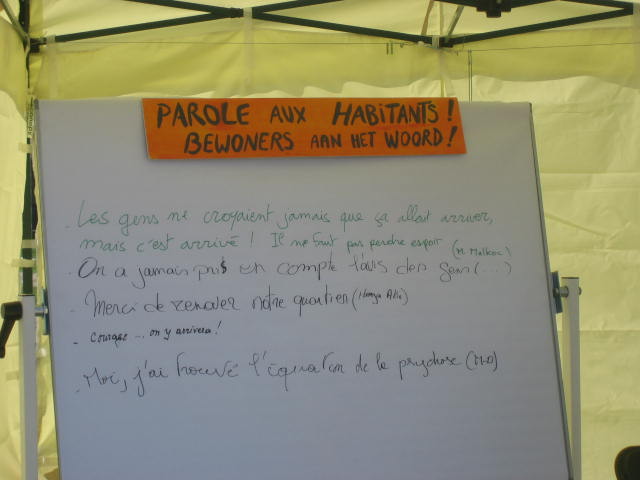 PAROLE AUX HABITANTS!
BEWONERS AAN HET WOORD!
. Les gens ne croyaient jamais que ça allait arriver,
mais c'est arrivé! Il ne faut pas perdre espoir (M. Malkoc)
. On a jamais pris en compte l'avis des gens (...)
. Merci de renover notre quartier (Hamza Alie)
- Courage ... on y arrivera!
. Moi, j'ai trouvé l'équation de la psychose (M.D)